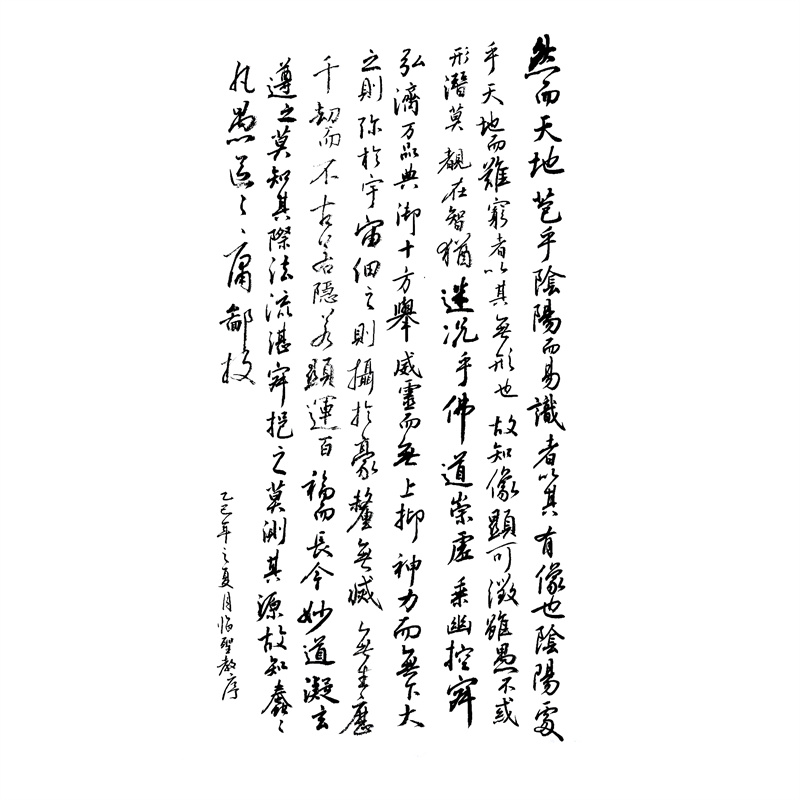 然而天地苞乎陰陽而易識者以其有像也陰陽處
乎天地而難窮者以其無形也故知像顯可徵雖愚不惑
形潛莫覩在智猶迷況乎佛道崇虛乘幽控寂
弘濟万品典御十方舉威靈而無上抑神力而無下大
之則弥於宇宙細之則攝於豪釐無滅無生歷
千劫而不古若隱若顯運百福而長今妙道凝玄
遵之莫知其際法流湛寂挹之莫測其源故知蠢々
凡愚區々庸鄙投
乙巳年之夏月臨聖教序